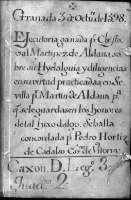 Granada 3 de Octu.e de 1598.
Executoria ganada p.r Christo
val Martinez de Aldana, so
bre su Hydalguia y diligencias
en su virtud practicadas en Se
villa p.r Martin de Aldana p.a
q.e se le guardasen los honores
de tal hixodalgo. Se halla
concordada p.r Pedro Hortiz
de
Caxon D. Leg. 3.
Num. 2.